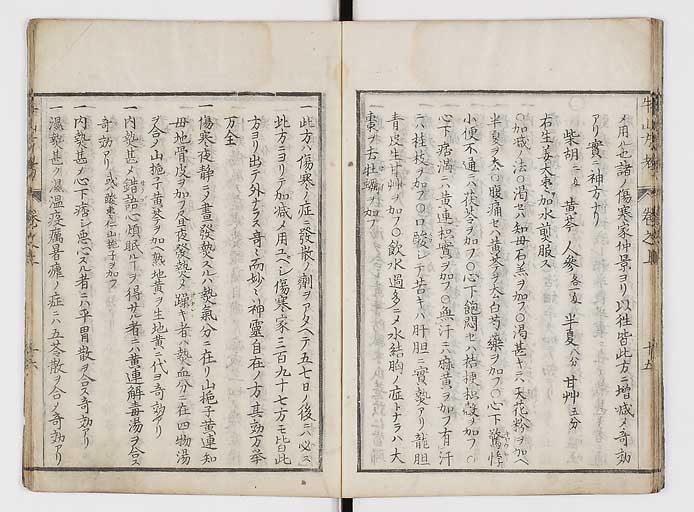 メ用ル也諸ノ傷寒家仲景ヨリ以徃皆此方ニ增減メ奇効
アリ實ニ神方ナリ
柴胡二匁 黄芩 人參各一匁 半夏八分 甘艸五分
右生姜大棗加水煎服ス
〇加减ノ法〇渇セハ知母石羔ヲ加フ〇渇甚キニハ天花粉ヲ加ヘ
半夏ヲ去〇腹痛セハ黄芩ヲ去白芍藥ヲ加フ〇心下驚悸
小便不通ニハ茯苓ヲ加フ〇心下飽悶セハ桔梗枳殻ヲ加フ〇
心下痞満ニハ黄連枳實ヲ加フ〇無汗ニハ麻黄ヲ加フ有汗
ニハ桂枝ヲ加フ〇口酸シテ苦キハ肝胆ニ實熱アリ龍胆
青皮生甘艸ヲ加フ〇飲水過多ニメ水結胸ノ症トナラハ大
棗ヲ去牡蠣ヲ加フ
一此方ハ傷寒ノ症ヘ發散ノ劑ヲアタヘテ五七日ノ後ニハ必ス
此方ニヨリテ加減メ用ユヘシ傷寒家三百九十七方モ皆此
方ヨリ出テ外ナラス奇ニ而妙ニ神靈自在ノ方其効万挙
万全
一傷寒夜静ニメ晝發熱スルハ熱氣分ニ在リ山梔子黄連知
母地骨皮ヲ加フ昼夜發熱メ躁キ者ハ熱血分ニ在四物湯
ヲ合メ山梔子黄芩ヲ加ヘ熟地黄ヲ生地黄ニ代ヨ奇効アリ
一内熱甚メ錯語心煩眠ルヿヲ得サル者ニハ黄連解毒湯ヲ合ス
奇効アリ
一内熱甚メ心下痞シ悪心スル者ニハ平胃散ヲ合ス奇効アリ
一濕熱甚ク濕温疫癘暑瘧ノ症ニハ五苓散ヲ合メ奇効アリ